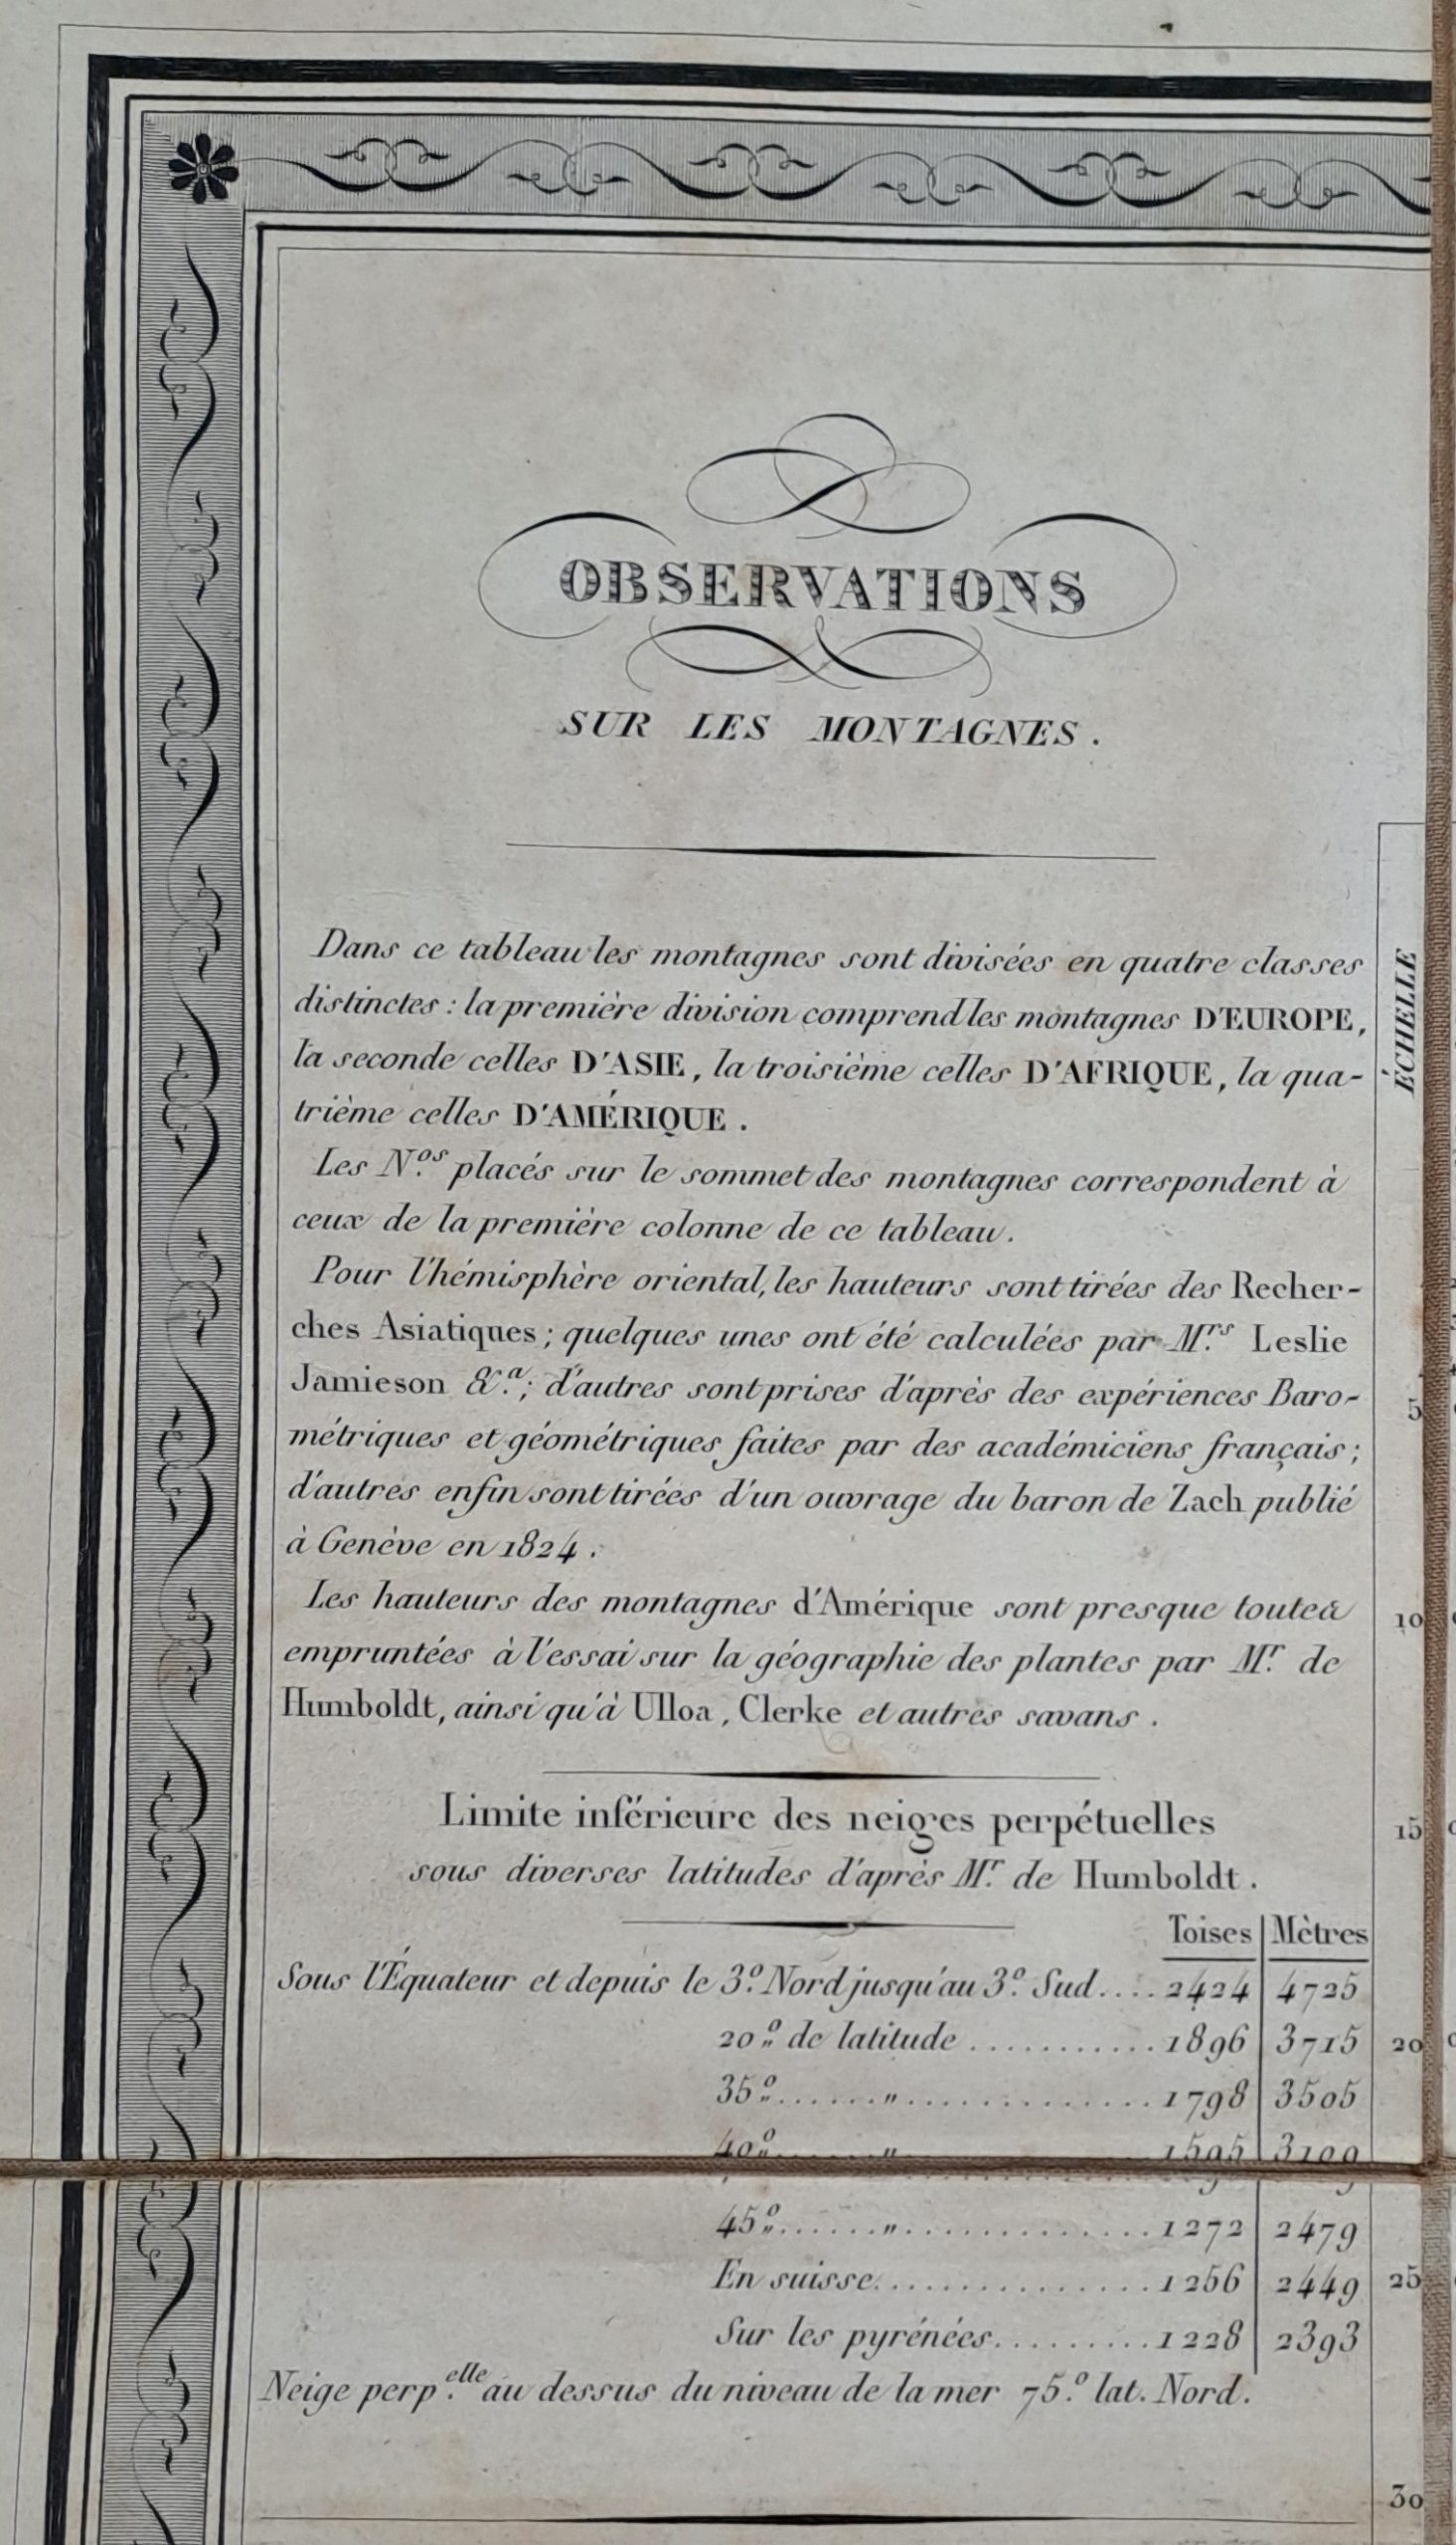 OBSERVATIONS
SUR LES MONTAGNES.
Dans ce tableau les montagnes sont divisées en quatre classes
distinctes : la première division comprend les montagnes D'EUROPE,
la seconde celles D'ASIE, la troisième celles D'AFRIQUE, la qua-
trième celles D'AMÉRIQUE.
Les N.os placés sur le sommet des montagnes correspondent à
ceux de la première colonne de ce tableau.
Pour l'hémisphère oriental, les hauteurs sont tirées des Recher-
ches Asiatiques ; quelques unes ont été calculées par M.rs Leslie
Jamieson &.a ; d'autres sont prises d'après des expériences Baro-
métriques et géométriques faites par des académiciens français ;
d'autres enfin sont tirées d'un ouvrage du baron de Zach publié
à Genève en 1824.
Les hauteurs des montagnes d'Amérique sont presque toutes
empruntées à l'essai sur la géographie des plantes par M.r de
Humboldt, ainsi qu'à Ulloa, Clerke et autres savans.
Limite inférieure des neiges perpétuelles
sous diverses latitudes d'après M.r de Humboldt.
Toises | Mètres
Sous l'Équateur et depuis le 3.º Nord jusqu'au 3.º Sud.... 2424 | 4725
20.º de latitude ........... 1896 | 3715
35.º ...... " ............. 1798 | 3505
40.º ...... " ............. 1595 | 3109
45.º ...... " ............. 1272 | 2479
En suisse ............... 1256 | 2449
Sur les pyrénées ......... 1228 | 2393
Neige perp.elle au dessus du niveau de la mer 75.º lat. Nord.
ÉCHELLE
5
10
15
20
25
30